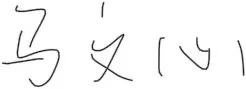 马文心